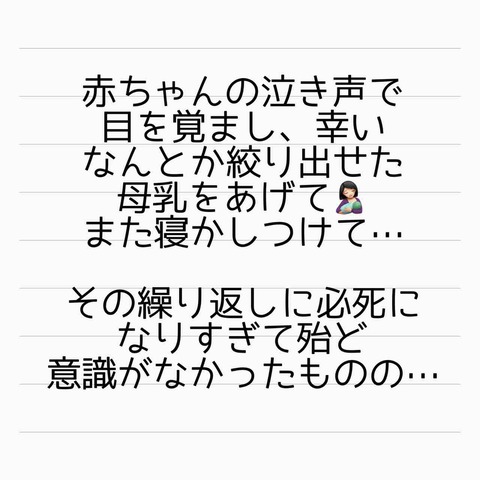 赤ちゃんの泣き声で
目を覚まし、幸い
なんとか絞り出せた
母乳をあげて🤱🏻
また寝かしつけて…
その繰り返しに必死に
なりすぎて殆ど
意識がなかったものの…